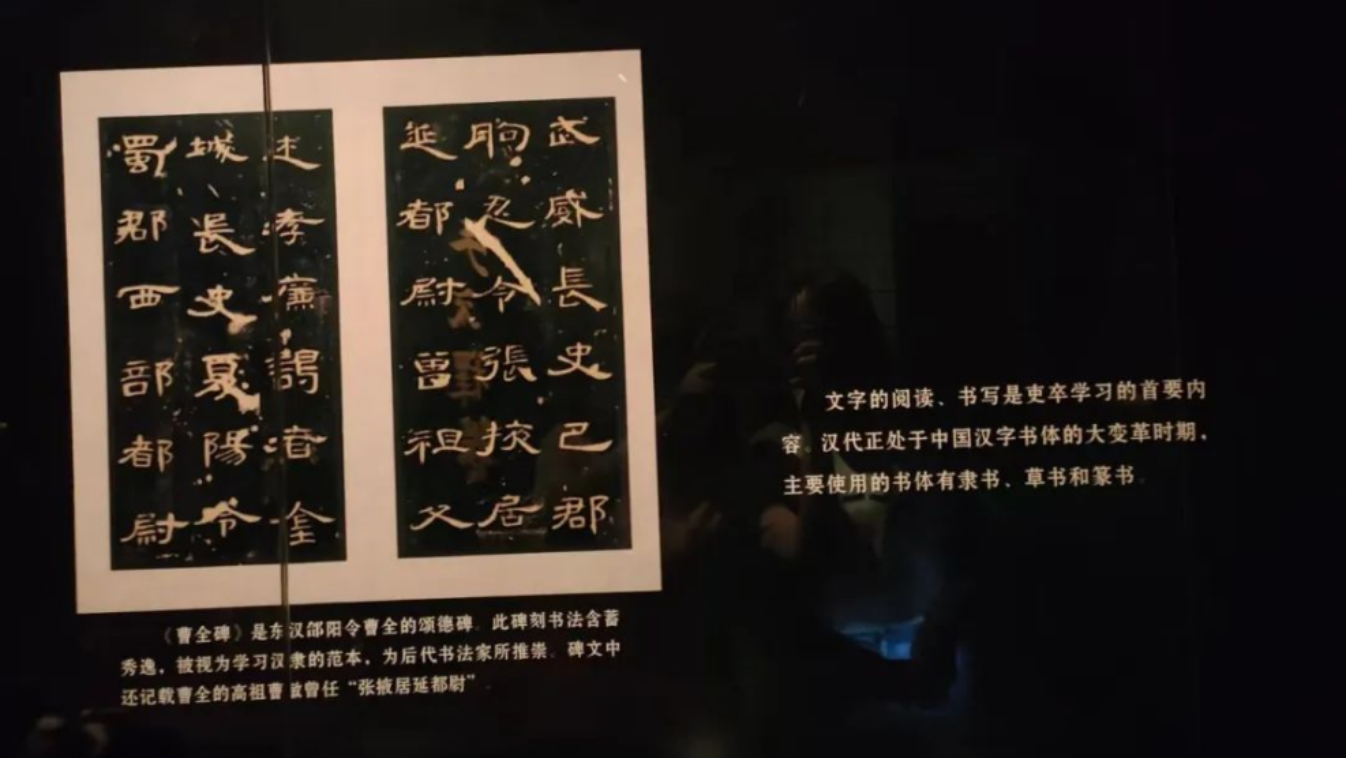 武威長史巴郡
朐忍令張掖居
延都尉曾祖父
述孝廉謁者金
城長史夏陽令
蜀郡西部都尉
《曹全碑》是东汉郃阳令曹全的颂德碑。此碑刻书法含蓄
秀逸，被视为学习汉隶的范本，为后代书法家所推崇。碑文中
还记载曹全的高祖曹敏曾任“张掖居延都尉”。
文字的阅读、书写是吏卒学习的首要内
容。汉代正处于中国汉字书体的大变革时期，
主要使用的书体有隶书、草书和篆书。